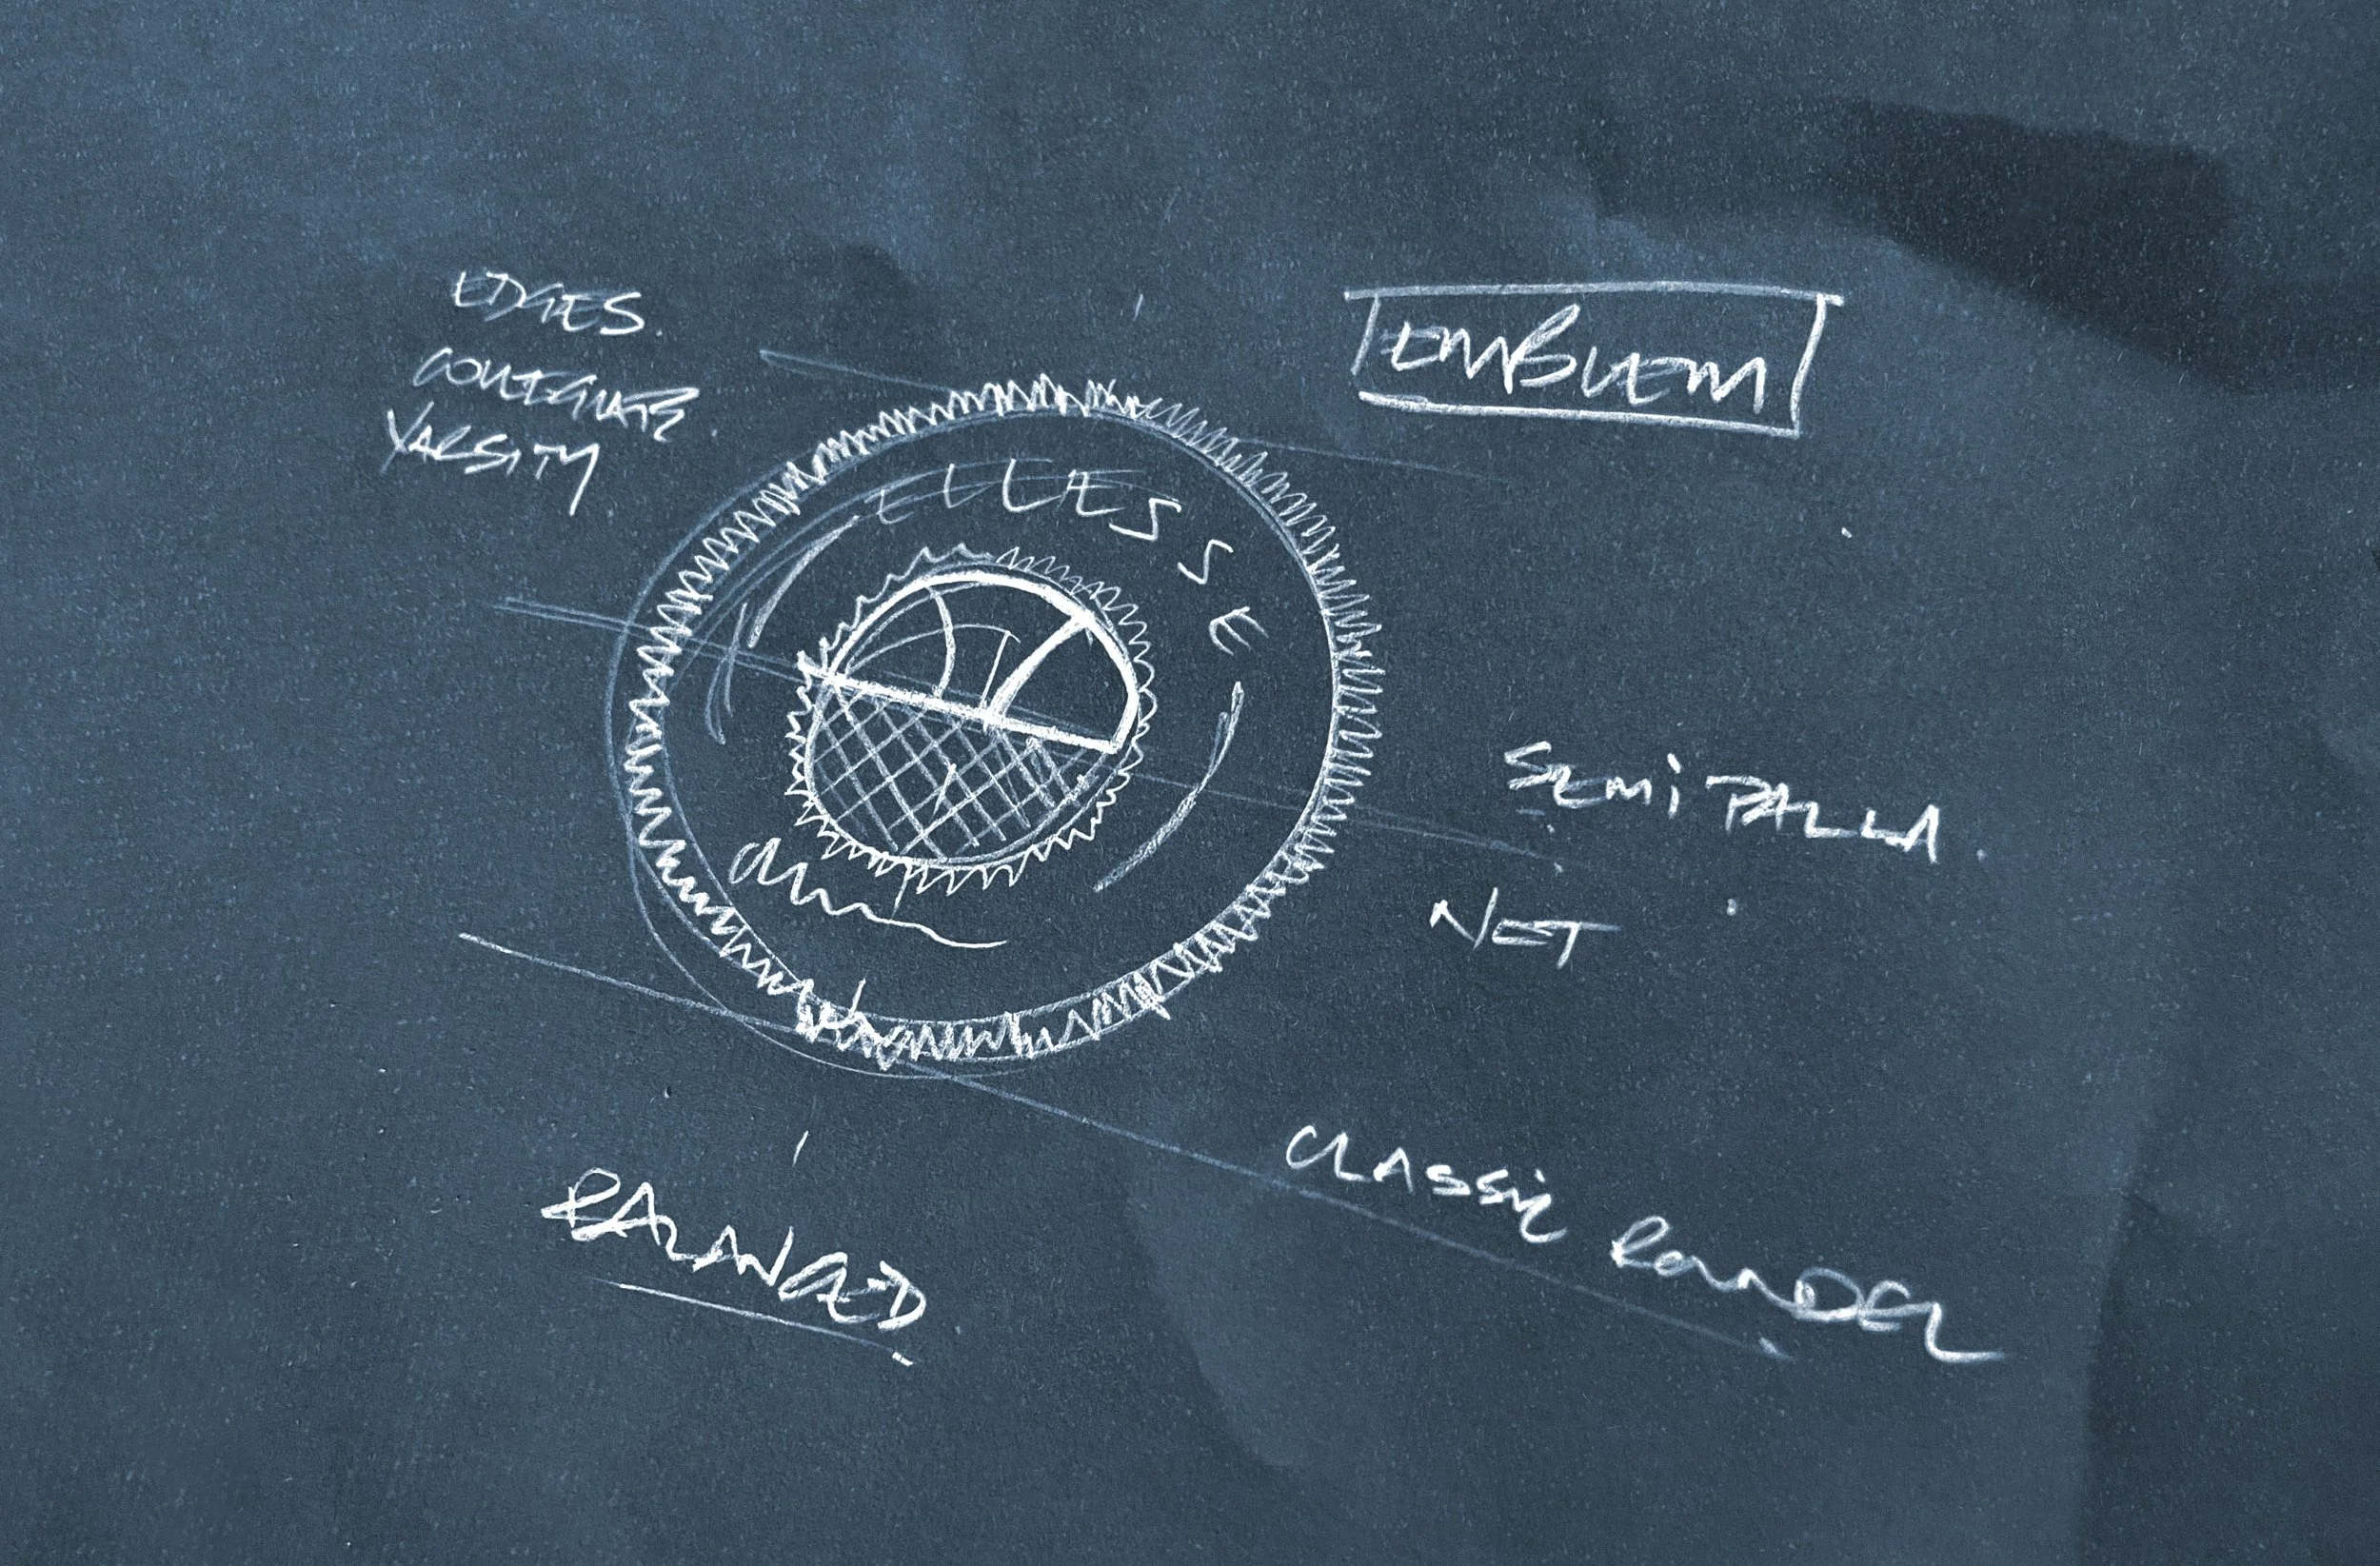 EDGES.
COLLEGIATE
VARSITY
EMBLEM
ELLESSE
SEMI PALLA.
NET
BALANCED
CLASSIC ROUNDEL